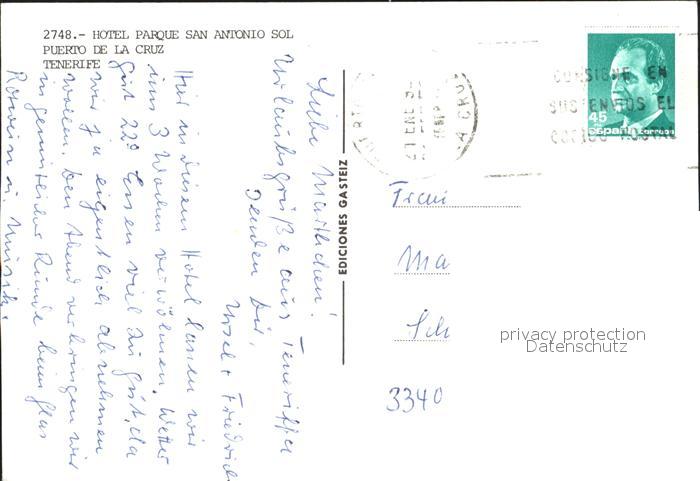 2748.- HOTEL PARQUE SAN ANTONIO SOL
PUERTO DE LA CRUZ
TENERIFE
Liebe Marthchen!
Urlaubsgrüße aus Teneriffa
senden Dir,
Ursel + Friedrich
Hier in diesem Hotel lassen wir
uns 3 Wochen verwöhnen. Wetter
gut 22° Essen viel zu gut, da
wir ja eigentlich abnehmen
wollen. Den Abend verbringen wir
in gemütlicher Runde beim Glas
Rotwein u. Musik.
EDICIONES GASTEIZ
21 ENE
A CRUZ
CONSIGNE EN
SUS ENVIOS EL
CODIGO POSTAL
45
España correos
Frau
Ma
Sch
3340
privacy protection
Datenschutz